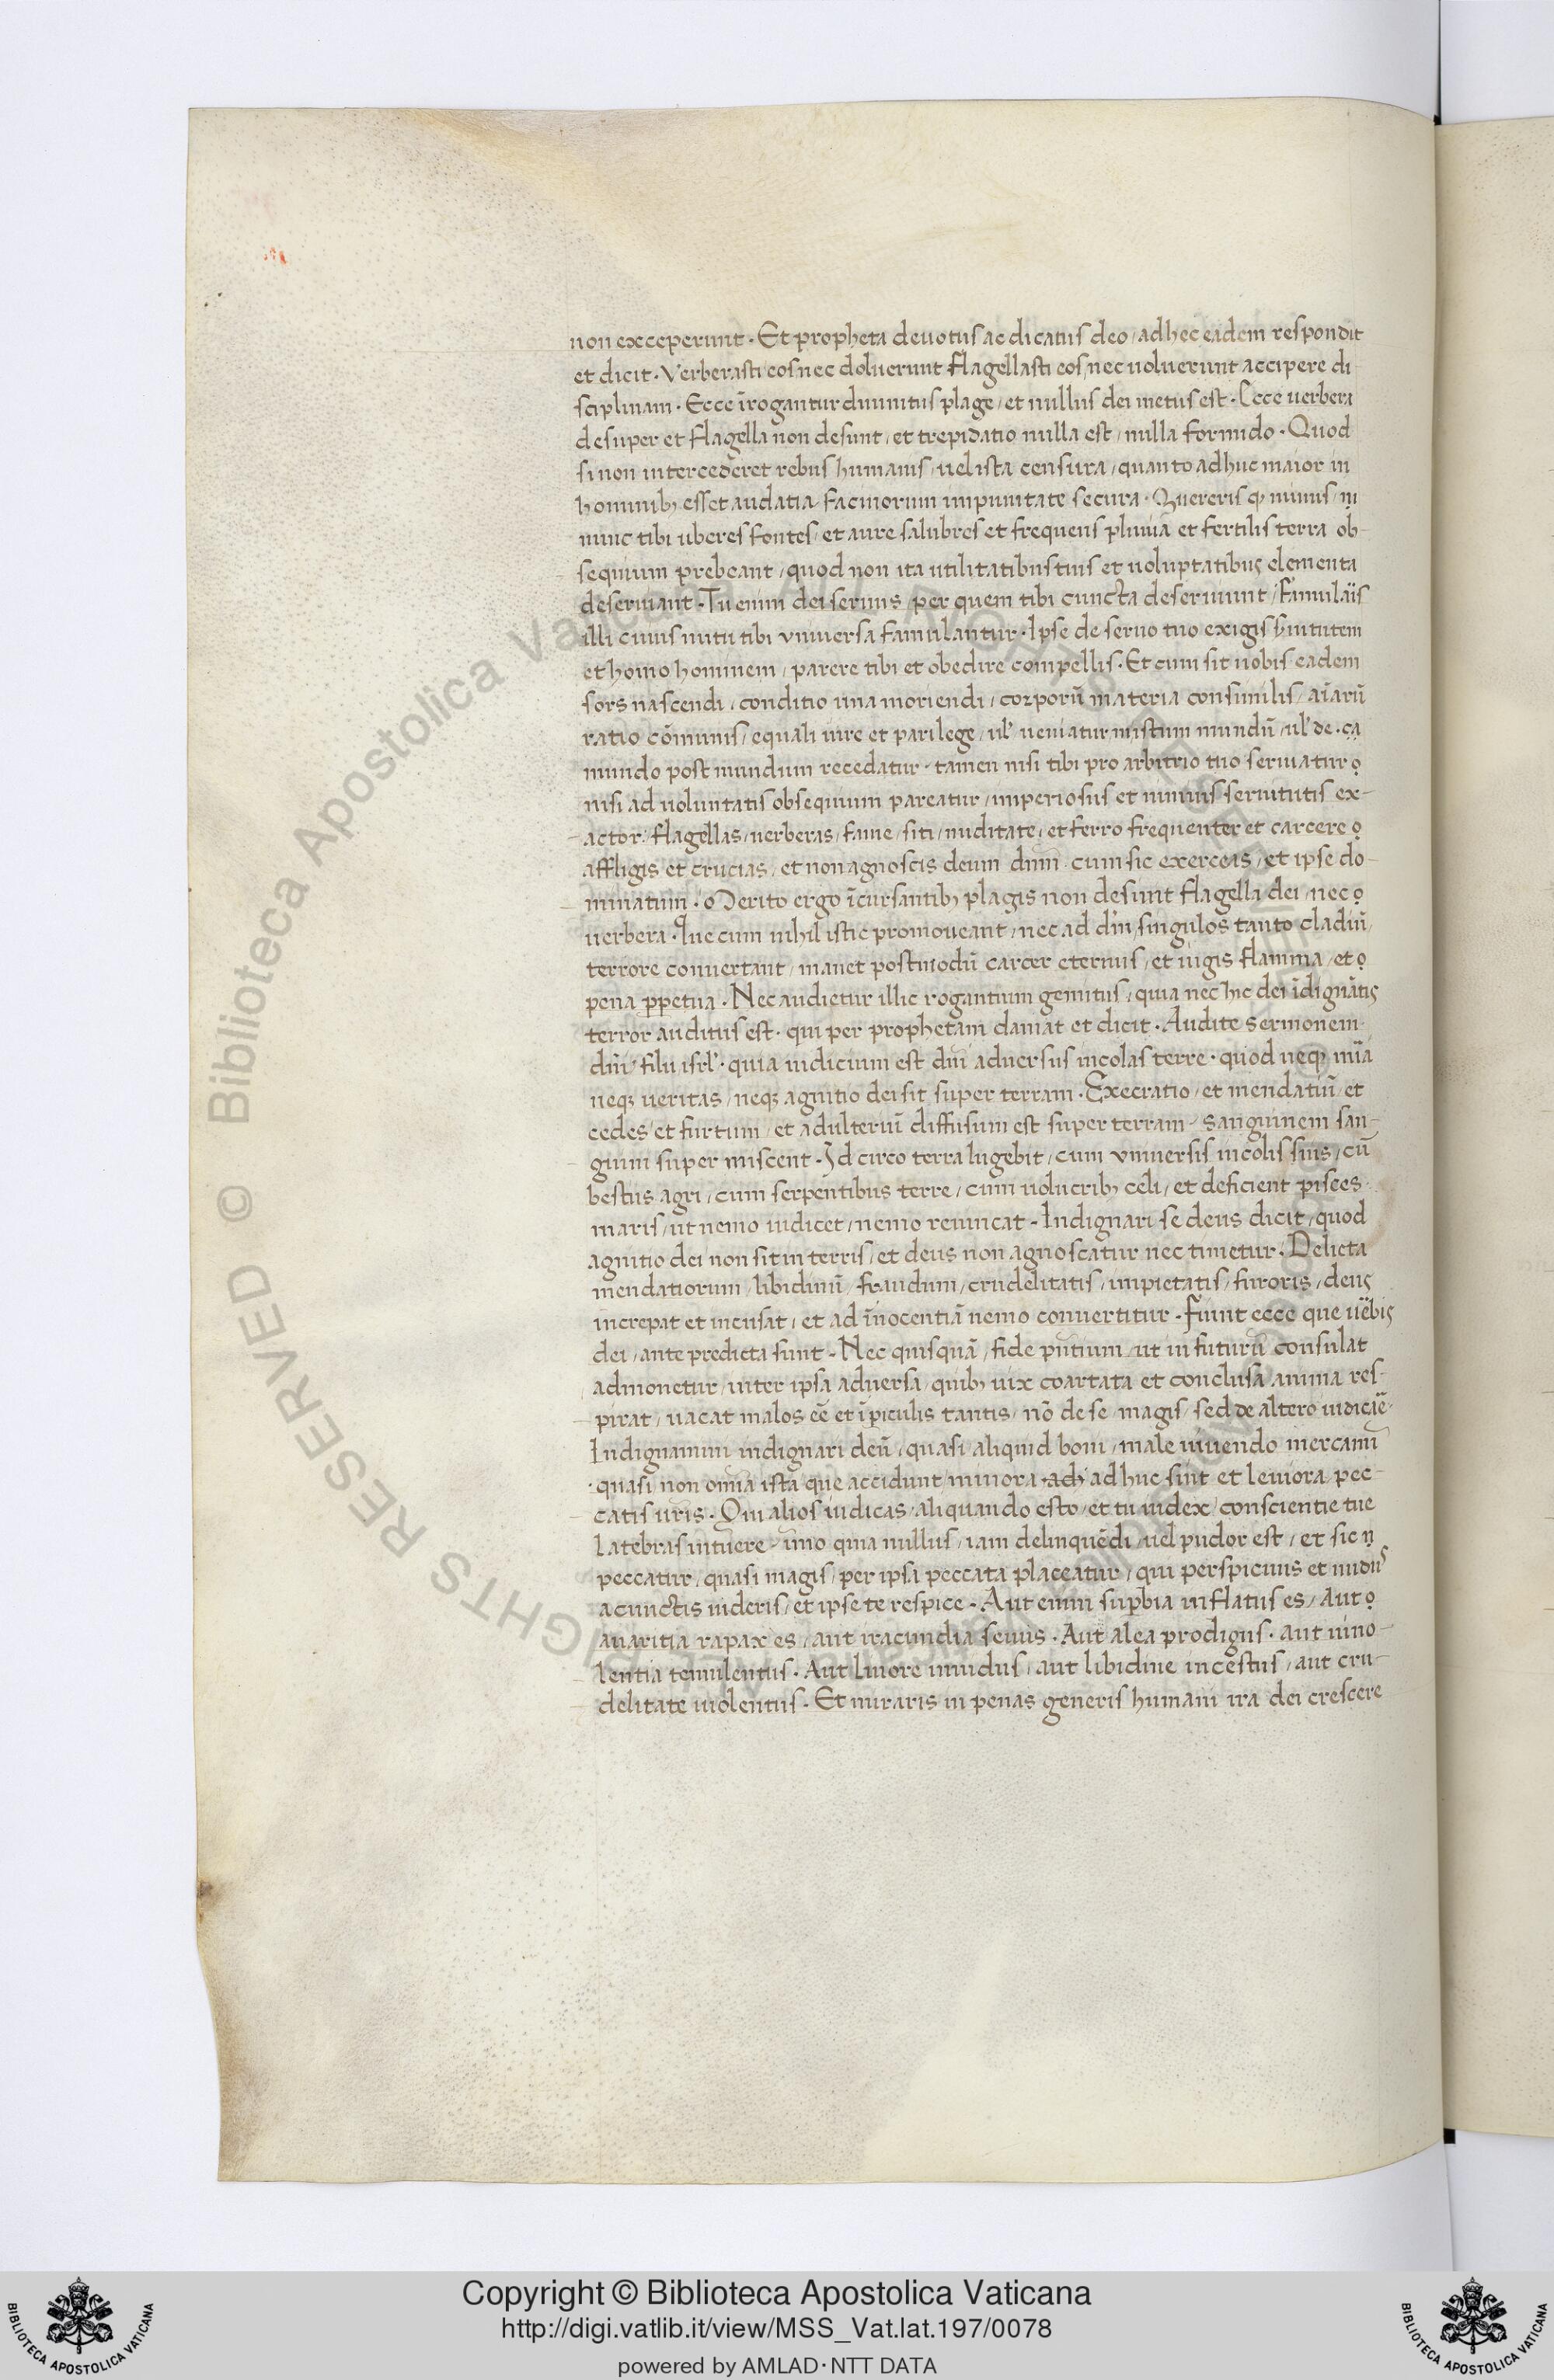 non exceperunt · Et propheta deuotus ac dicatus deo / ad hec eadem respondit
et dicit · Verberasti eos nec doluerunt flagellasti eos / nec uoluerunt accipere di-
sciplinam · Ecce īrogantur diuinitus plage / et nullus dei metus est · Ecce uerbera
desuper et flagella non desunt / et trepidatio nulla est / nulla formido · Quod
si non intercederet rebus humanis / uel ista censura / quanto adhuc maior in
hominibꝫ esset audatia / facinorum impunitate secura · Quereris qꝫ minus / ni
nunc tibi uberes fontes / et aure salubres et frequens pluuia et fertilis terra ob-
sequium prebeant / quod non ita utilitatibus tuis et uoluptatibus elementa
deseruiant · Tu enim dei seruus / per quem tibi cuncta deseruiunt / famulaïs
illi cuius nutu tibi vniuersa famulantur · Ipse de seruo tuo exigis seruitutem
et homo hominem / parere tibi et obedire compellis · Et cum sit uobis eadem
sors nascendi / conditio una moriendi / corporū materia consimilis / aīarū
ratio cōmunis / equali iure et pari lege / ul' ueniatur in istum mundū / ul' de · ca
mundo post mundum recedatur · tamen nisi tibi pro arbitrio tuo seruiatur o
nisi ad uoluntatis obsequium pareatur / imperiosus et nimius seruitutis ex-
actor / flagellas / uerberas / fame / siti / nuditate / et ferro frequenter et carcere o
affligis et crucias / et non agnoscis deum dnm̄ cum sic exerceas / et ipse do-
minatum · Merito ergo īcursantibꝫ plagis non desunt flagella dei / nec o
uerbera · Que cum nihil istic promoueant / nec ad dīm singulos tanto cladiū
terrore conuertant / manet postmodū carcer eternus / et iugis flamma / et o
pena ꝑpetua · Nec audietur illic rogantium gemitus / quia nec hic dei īdignātis
terror auditus est · qui per prophetam clamat et dicit · Audite sermonem
dn̄i / filii isrl' · quia iudicium est dn̄i aduersus incolas terre · quod neqꝫ mīa
neqꝫ ueritas / neqꝫ agnitio dei sit super terram · Execratio / et mendatiū / et
cedes / et furtum / et adulteriū diffusum est super terram / sanguinem san-
guini super miscent · Id circo terra lugebit / cum vniuersis incolis suis / cū
bestiis agri / cum serpentibus terre / cum uolucribꝫ celi / et deficient pisces
maris / ut nemo iudicet / nemo reuincat - Indignari se deus dicit / quod
agnitio dei non sit in terris / et deus non agnoscatur nec timetur · Delicta
mendatiorum / libidinū / fraudum / crudelitatis / impietatis / furoris / deus
increpat et incusat / et ad īnocentiā nemo conuertitur · Fiunt ecce que uēbis
dei / ante predicta sunt - Nec quisquā / fide pn̄tium / ut in futurū consulat
admonetur / inter ipsa aduersa / quibꝫ uix coartata et conclusa anima res-
pirat / uacat malos eē et ī ꝑiculis tantis / nō de se magis / sed de altero iudicaē
Indignamini indignari deū / quasi aliquid boni / male uiuendo mercamī
· quasi non omīa ista que accidunt minora adh adhuc sint et leuiora pec-
catis uris · Qui alios iudicas / aliquando esto / et tu iudex / conscientie tue
latebras intuere / imo quia nullus / iam delinquēdi / uel pudor est / et sic n
peccatur / quasi magis / per ipsa peccata placeatur / qui perspicuus et nudus
a cunctis uideris / et ipse te respice - Aut enim suꝑbia inflatus es / aut o
auaritia rapax es / aut iracundia seuus · Aut alea prodigus · aut uino-
lentia temulentus · Aut liuore inuidus / aut libidine incestus / aut cru-
delitate uiolentus - Et miraris in penas generis humani ira dei crescere
© Biblioteca Apostolica Vaticana
RIGHTS RESERVED
Copyright © Biblioteca Apostolica Vaticana
http://digi.vatlib.it/view/MSS_Vat.lat.197/0078
powered by AMLAD·NTT DATA
BIBLIOTECA APOSTOLICA VATICANA
BIBLIOTECA APOSTOLICA VATICANA